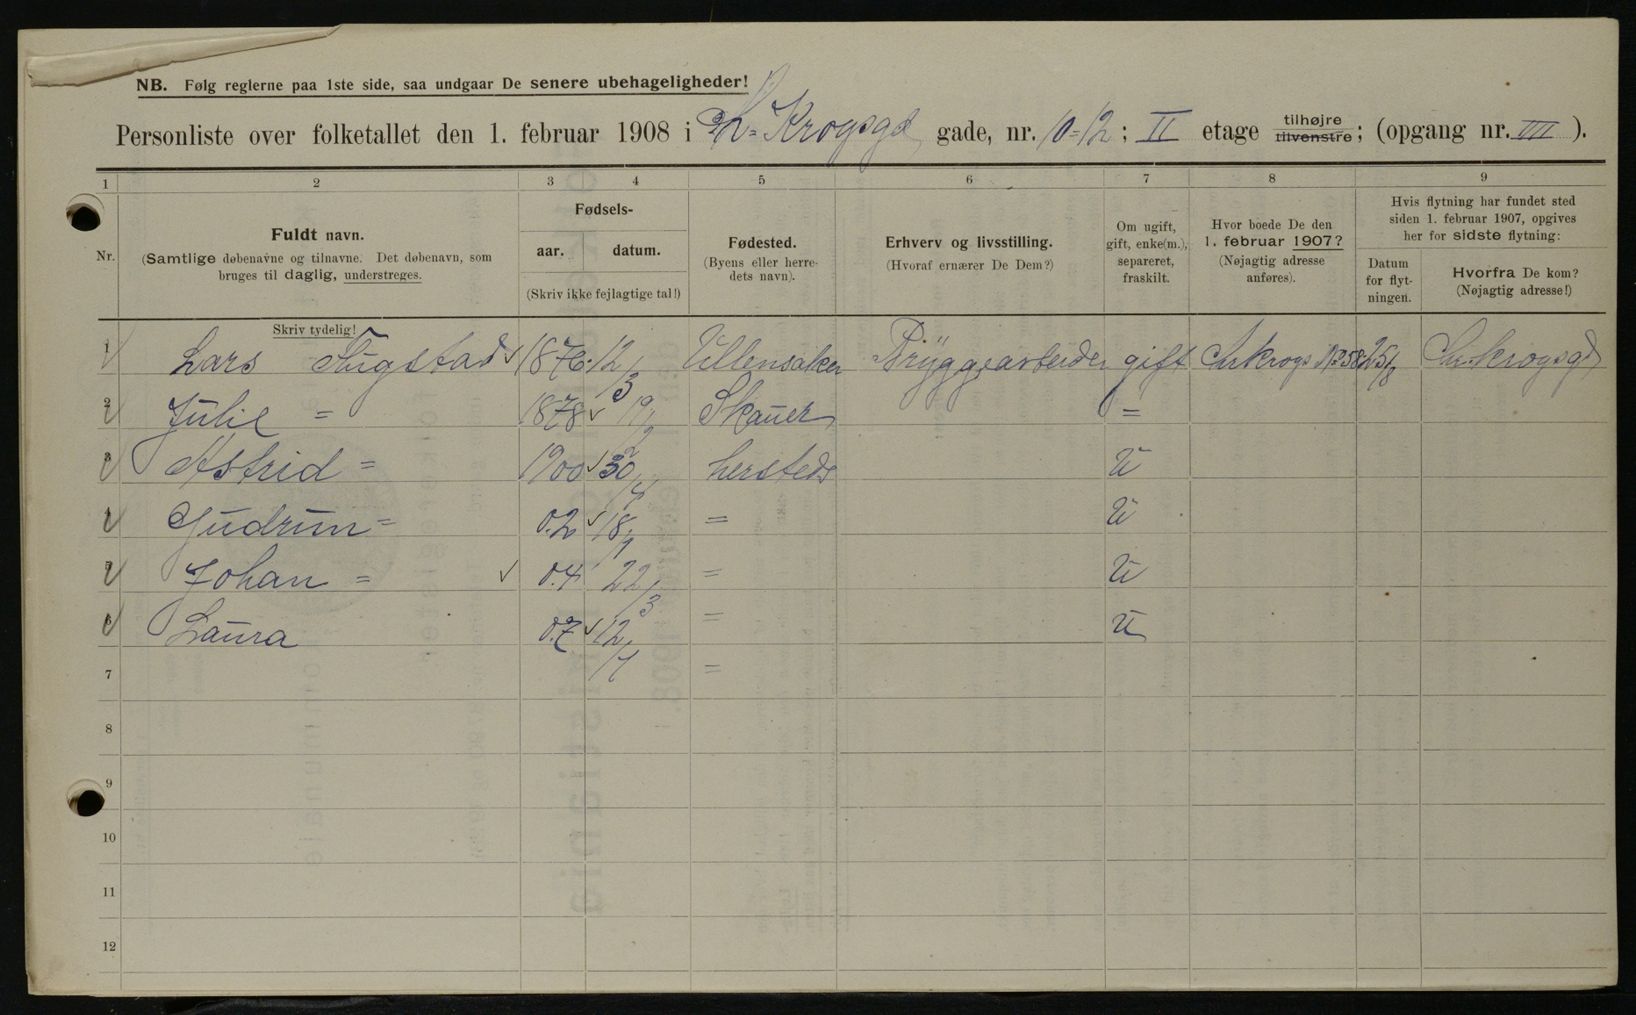 NB. Følg reglerne paa 1ste side, saa undgaar De senere ubehageligheder!
Personliste over folketallet den 1. februar 1908 i Krogsgd gade, nr. 10=12; II etage tilhøjre tilvenstre; (opgang nr. VII ).
1 2 3 4 5 6 7 8 9
Nr.
Fuldt navn.
(Samtlige døbenavne og tilnavne. Det døbenavn, som bruges til daglig, understreges.
Skriv tydelig!
Fødsels-
aar. datum.
(Skriv ikke fejlagtige tal!)
Fødested.
(Byens eller herredets navn).
Erhverv og livsstilling.
(Hvoraf ernærer De Dem?)
Om ugift, gift, enke(m.), separeret, fraskilt.
Hvor boede De den 1. februar 1907?
(Nøjagtig adresse anføres).
Hvis flytning har fundet sted siden 1. februar 1907, opgives her for sidste flytning:
Datum for flytningen.
Hvorfra De kom?
(Nøjagtig adresse!)
1 Lars 1876 12/3 Ullensaker Bryggearbeider gift Chr krogs Nr 58 25/8 Chr krogsgd
2 Julie = 1878 19/2 Skauer =
3 Astrid = 1900 30/4 hersteds U
4 Gudrun = 02 18/1 = U
5 Johan = 04 22/3 = U
6 Laura 07 12/1 = U
7 =
8
9
10
11
12